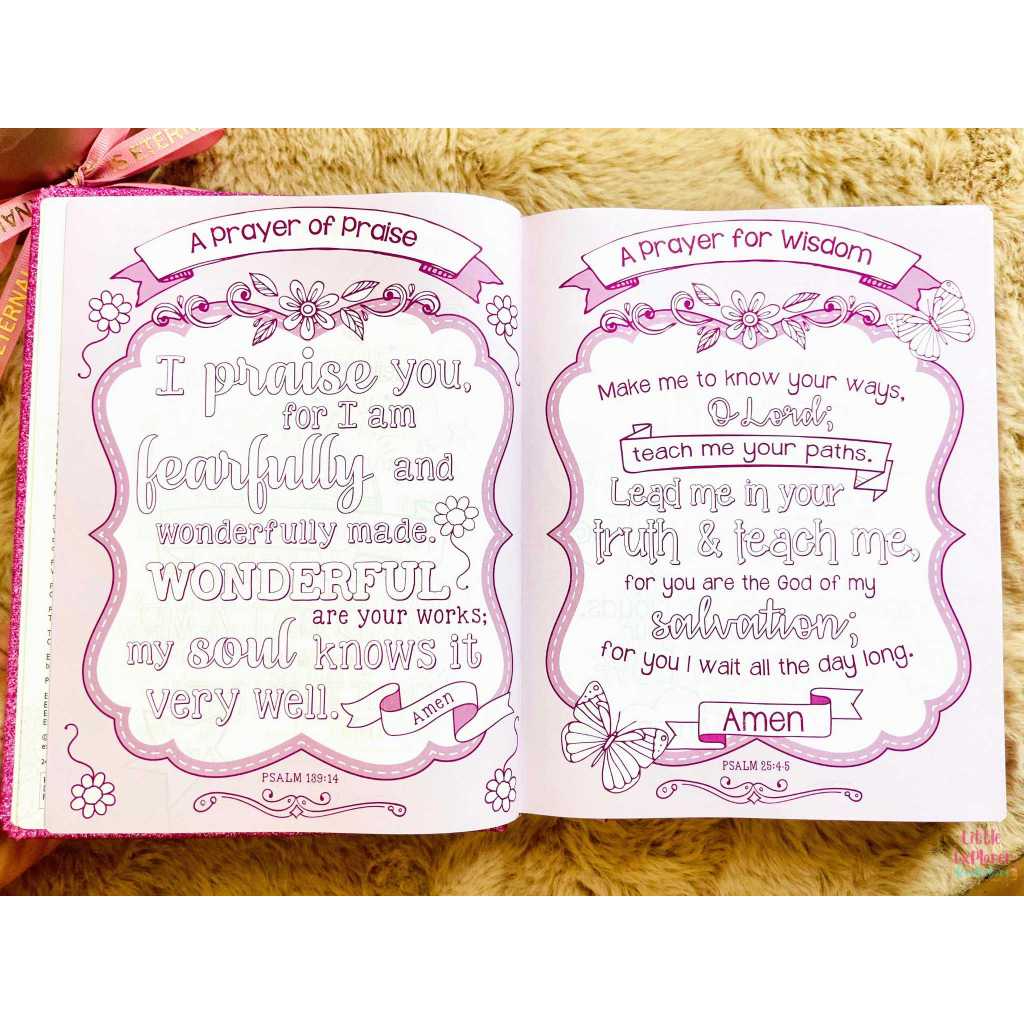 IS ETERNAL
ETERNAL
A Prayer of Praise
I praise you,
for I am
fearfully and
wonderfully made.
WONDERFUL
are your works;
my soul knows it
very well.
Amen
PSALM 139:14
A Prayer for Wisdom
Make me to know your ways,
O Lord;
teach me your paths.
Lead me in your
truth & teach me,
for you are the God of my
salvation;
for you I wait all the day long.
Amen
PSALM 25:4-5
Little
Explorer